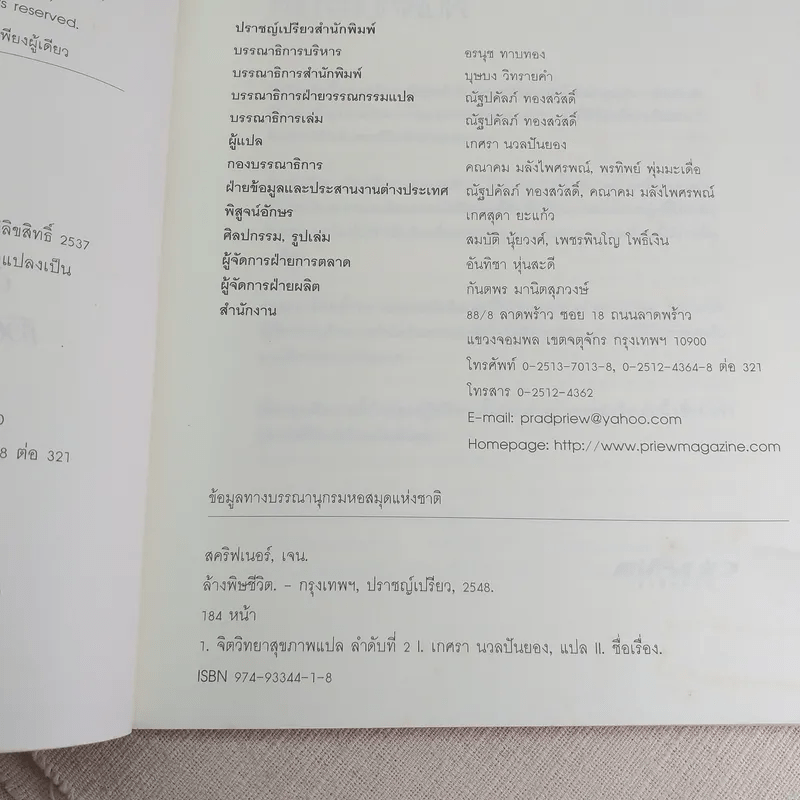 s reserved.
พียงผู้เดียว
ลิขสิทธิ์ 2537
แปลงเป็น
8 ต่อ 321
ปราชญ์เปรียวสำนักพิมพ์
บรรณาธิการบริหาร อรนุช ทาบทอง
บรรณาธิการสำนักพิมพ์ บุษบง วิทรายคำ
บรรณาธิการฝ่ายวรรณกรรมแปล ณัฐปคัลภ์ ทองสวัสดิ์
บรรณาธิการเล่ม ณัฐปคัลภ์ ทองสวัสดิ์
ผู้แปล เกศรา นวลปันยอง
กองบรรณาธิการ คณาคม มลังไพศรพณ์, พรทิพย์ พุ่มมะเดื่อ
ฝ่ายข้อมูลและประสานงานต่างประเทศ ณัฐปคัลภ์ ทองสวัสดิ์, คณาคม มลังไพศรพณ์
พิสูจน์อักษร เกศสุดา ยะแก้ว
ศิลปกรรม, รูปเล่ม สมบัติ นุ้ยวงศ์, เพชรพินโญ โพธิ์เงิน
ผู้จัดการฝ่ายการตลาด อันทิชา หุ่นสะดี
ผู้จัดการฝ่ายผลิต กันตพร มานิตสุภวงษ์
สำนักงาน 88/8 ลาดพร้าว ซอย 18 ถนนลาดพร้าว
แขวงจอมพล เขตจตุจักร กรุงเทพฯ 10900
โทรศัพท์ 0-2513-7013-8, 0-2512-4364-8 ต่อ 321
โทรสาร 0-2512-4362
E-mail: pradpriew@yahoo.com
Homepage: http://www.priewmagazine.com
ข้อมูลทางบรรณานุกรมหอสมุดแห่งชาติ
สคริฟเนอร์, เจน.
ล้างพิษชีวิต. – กรุงเทพฯ, ปราชญ์เปรียว, 2548.
184 หน้า
1. จิตวิทยาสุขภาพแปล ลำดับที่ 2 I. เกศรา นวลปันยอง, แปล II. ชื่อเรื่อง.
ISBN 974-93344-1-8